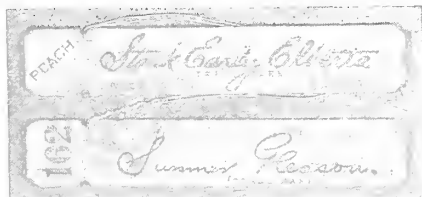 PEACH
Stark Early Elberta
162
Summer